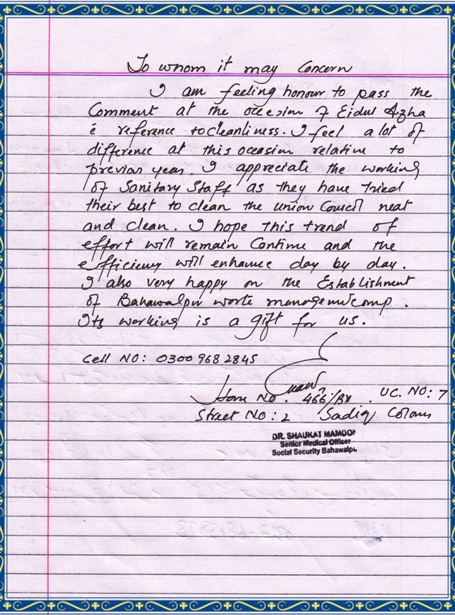 To whom it may Concern
I am feeling honour to pass the
Comment at the occasion of Eidul Azha
c̄ reference to cleanliness. I feel a lot of
difference at this occasion relative to
previous year. I appreciate the working
of Sanitary Staff as they have tried
their best to clean the union Council neat
and clean. I hope this trend of
effort will remain Continue and the
efficiency will enhance day by day.
I also very happy on the Establishment
of Bahawalpur waste management comp.
Its working is a gift for us.
Cell NO: 0300 968 2845
House No. 466/BX . UC. NO: 7
Street No: 2 Sadiq Colony
DR. SHAUKAT MAMOO
Senior Medical Officer
Social Security Bahawalpu